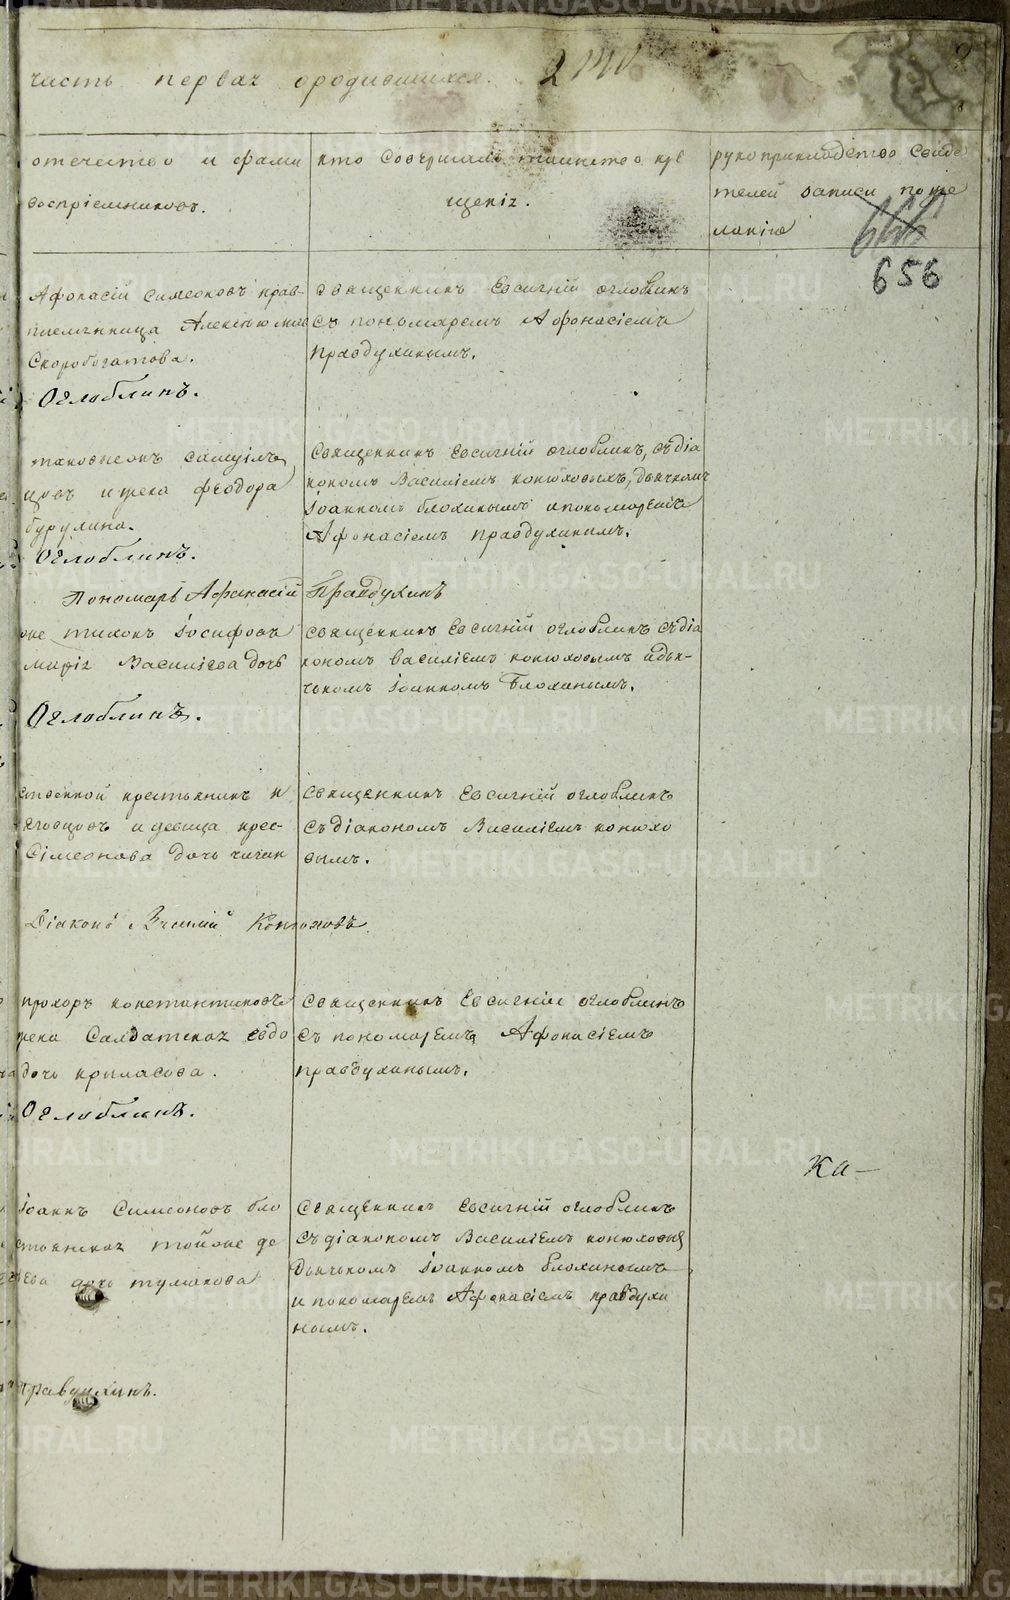 часть первая ородившихся.
9
отечество и фами
воспріемниковъ.
кто совершалъ таинство кре
щенія.
рукоприкладство свиде
телей записи по же
ланію
656
Афонасій Симеоновъ прав-
племянница
Скоробогатова.
Оглоблинъ.
священникъ Евсигній оглоблинъ
съ пономаремъ Афонасіемъ
правдухинымъ.
цовъ и жена феодора
бурулина.
Оглоблинъ.
священникъ Евсигній оглоблинъ, съ діа
кономъ Василіемъ конюховымъ, дьячкомъ
Іоанномъ блохинымъ ипономаремъ
Афонасіемъ правдухинымъ.
Пономарь Афанасій Правдухинъ
оне тихонъ Іосифовъ
марія Василіева дочь
Оглоблинъ.
священникъ Евсигній оглоблинъ съ діа
кономъ василіемъ конюховымъ идья-
чькомъ Іоанномъ Блохинымъ.
ственной крестьянинъ н
яговцовъ и девица крес-
Сімеонова дочь чиган
священникъ Евсигній оглоблинъ
съ діакономъ Василіемъ конюхо
вымъ.
Діаконъ Василій Конюховъ
прохоръ константиновъ
жена Салдатская евдо
дочь крыласова.
Оглоблинъ.
священникъ Евсигній оглоблинъ
съ пономаремъ Афонасіемъ
правдухинымъ.
Ка-
Іоаннъ Симеоновъ бло
стьянская тойоне де
ева дочь тумакова
священникъ Евсигній оглоблинъ
съ діакономъ Василіемъ конюховым
Дьячькомъ Іоанномъ блохинымъ
и пономаремъ Афонасіемъ правдухи
нымъ.
Правдухинъ.
METRIKI.GASO-URAL.RU